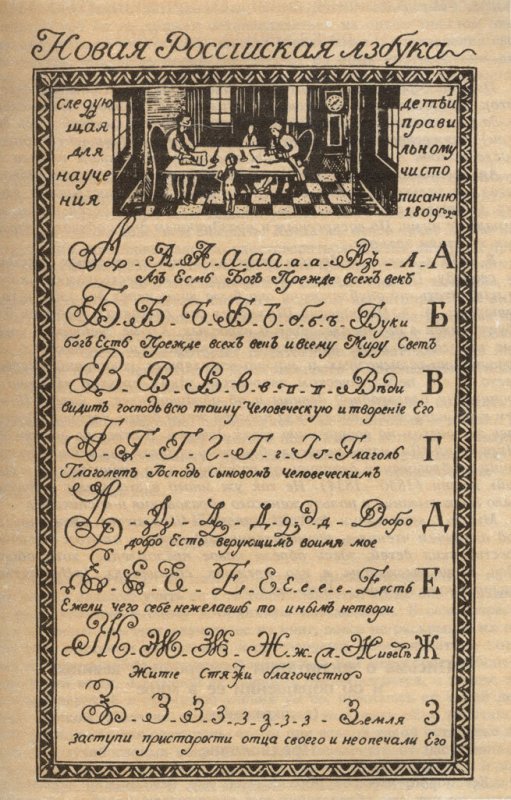 Новая Россииская Азбука
следую
щая
для
науче
ния
I
детьи
прави
льному
чисто
писанию
1809 года
А - А А а а а - а - а - Азъ - А - А
Азъ Есмь Богъ Прежде всехъ векъ
Б Б - Б - Б - Б - б - б - ъ - Буки Б
богъ Есть Прежде всехъ векъ и всему Миру Светъ
В - В - В - в - в - п - п - Вѣди В
видитъ господь всю таину Человеческую и творение Его
Г - Г - Г - Г - Г - г - Г г - Глаголь Г
Глаголетъ Господь Сыновомъ Человеческимъ
Д - Д - Д - Д - д - д д - Добро Д
добро Есть верующимъ воимя мое
Е - Е - Е - Е - Е Е е - е - е - е - Есть Е
Ежели чего себе нежелаешь то инымъ нетвори
Ж Ж - Ж - Ж - ж - Живетъ Ж
Житіе стяжи благочестно
З - З З З - з - з - з - з - Земля З
заступи пристарости отца своего и неопечали Его